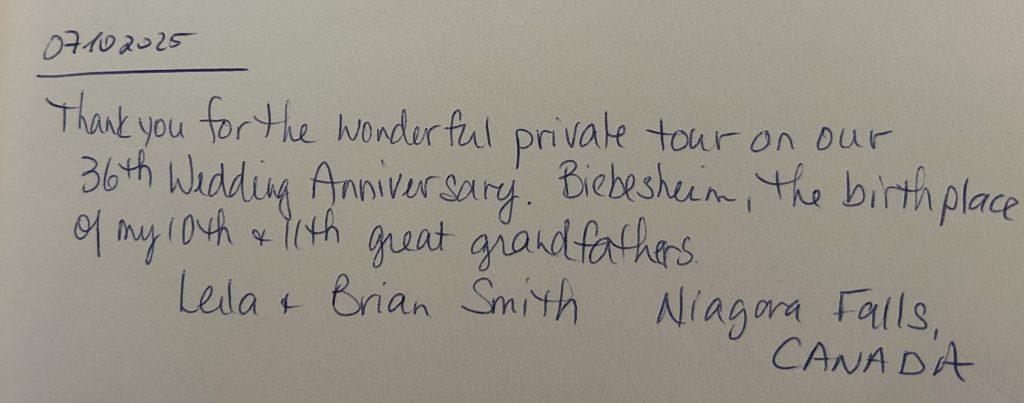 07102025
Thank you for the wonderful private tour on our
36th Wedding Anniversary. Biebesheim, the birthplace
of my 10th & 11th great grandfathers.
Leila & Brian Smith Niagara Falls,
CANADA